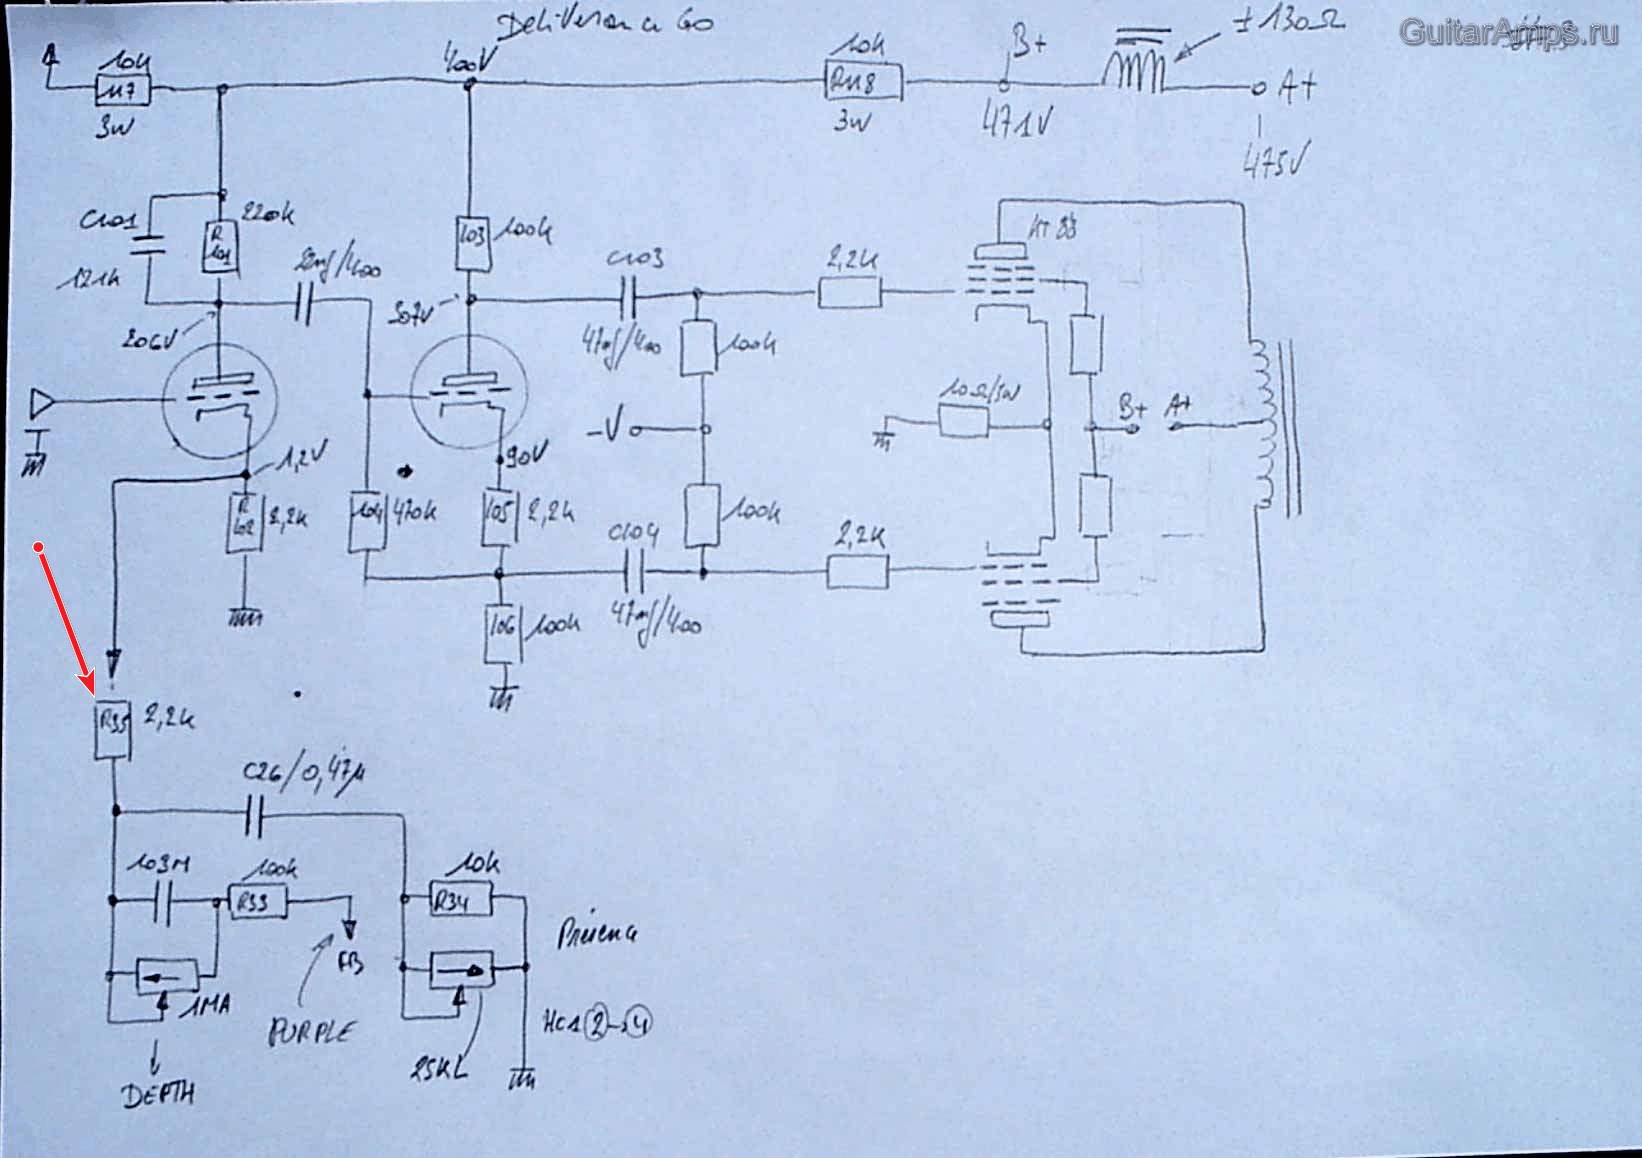 Deliverance 60
GuitarAmps.ru
± 130Ω
10k
117
3W
400V
10k
R118
3W
B+
471V
A+
475V
C101
121k
R
101
220k
22nf/400
206V
103
100k
307V
C103
47nf/400
2,2k
KT88
100k
-V
10Ω/3W
B+
A+
1,2V
R
102
2,2k
104
470k
90V
105
2,2k
100k
C104
47nf/400
2,2k
106
100k
R35
2,2k
C26/0,47µ
103M
100k
R33
10k
R34
FB
Presence
1MA
PURPLE
HC1 2→4
25KL
DEPTH